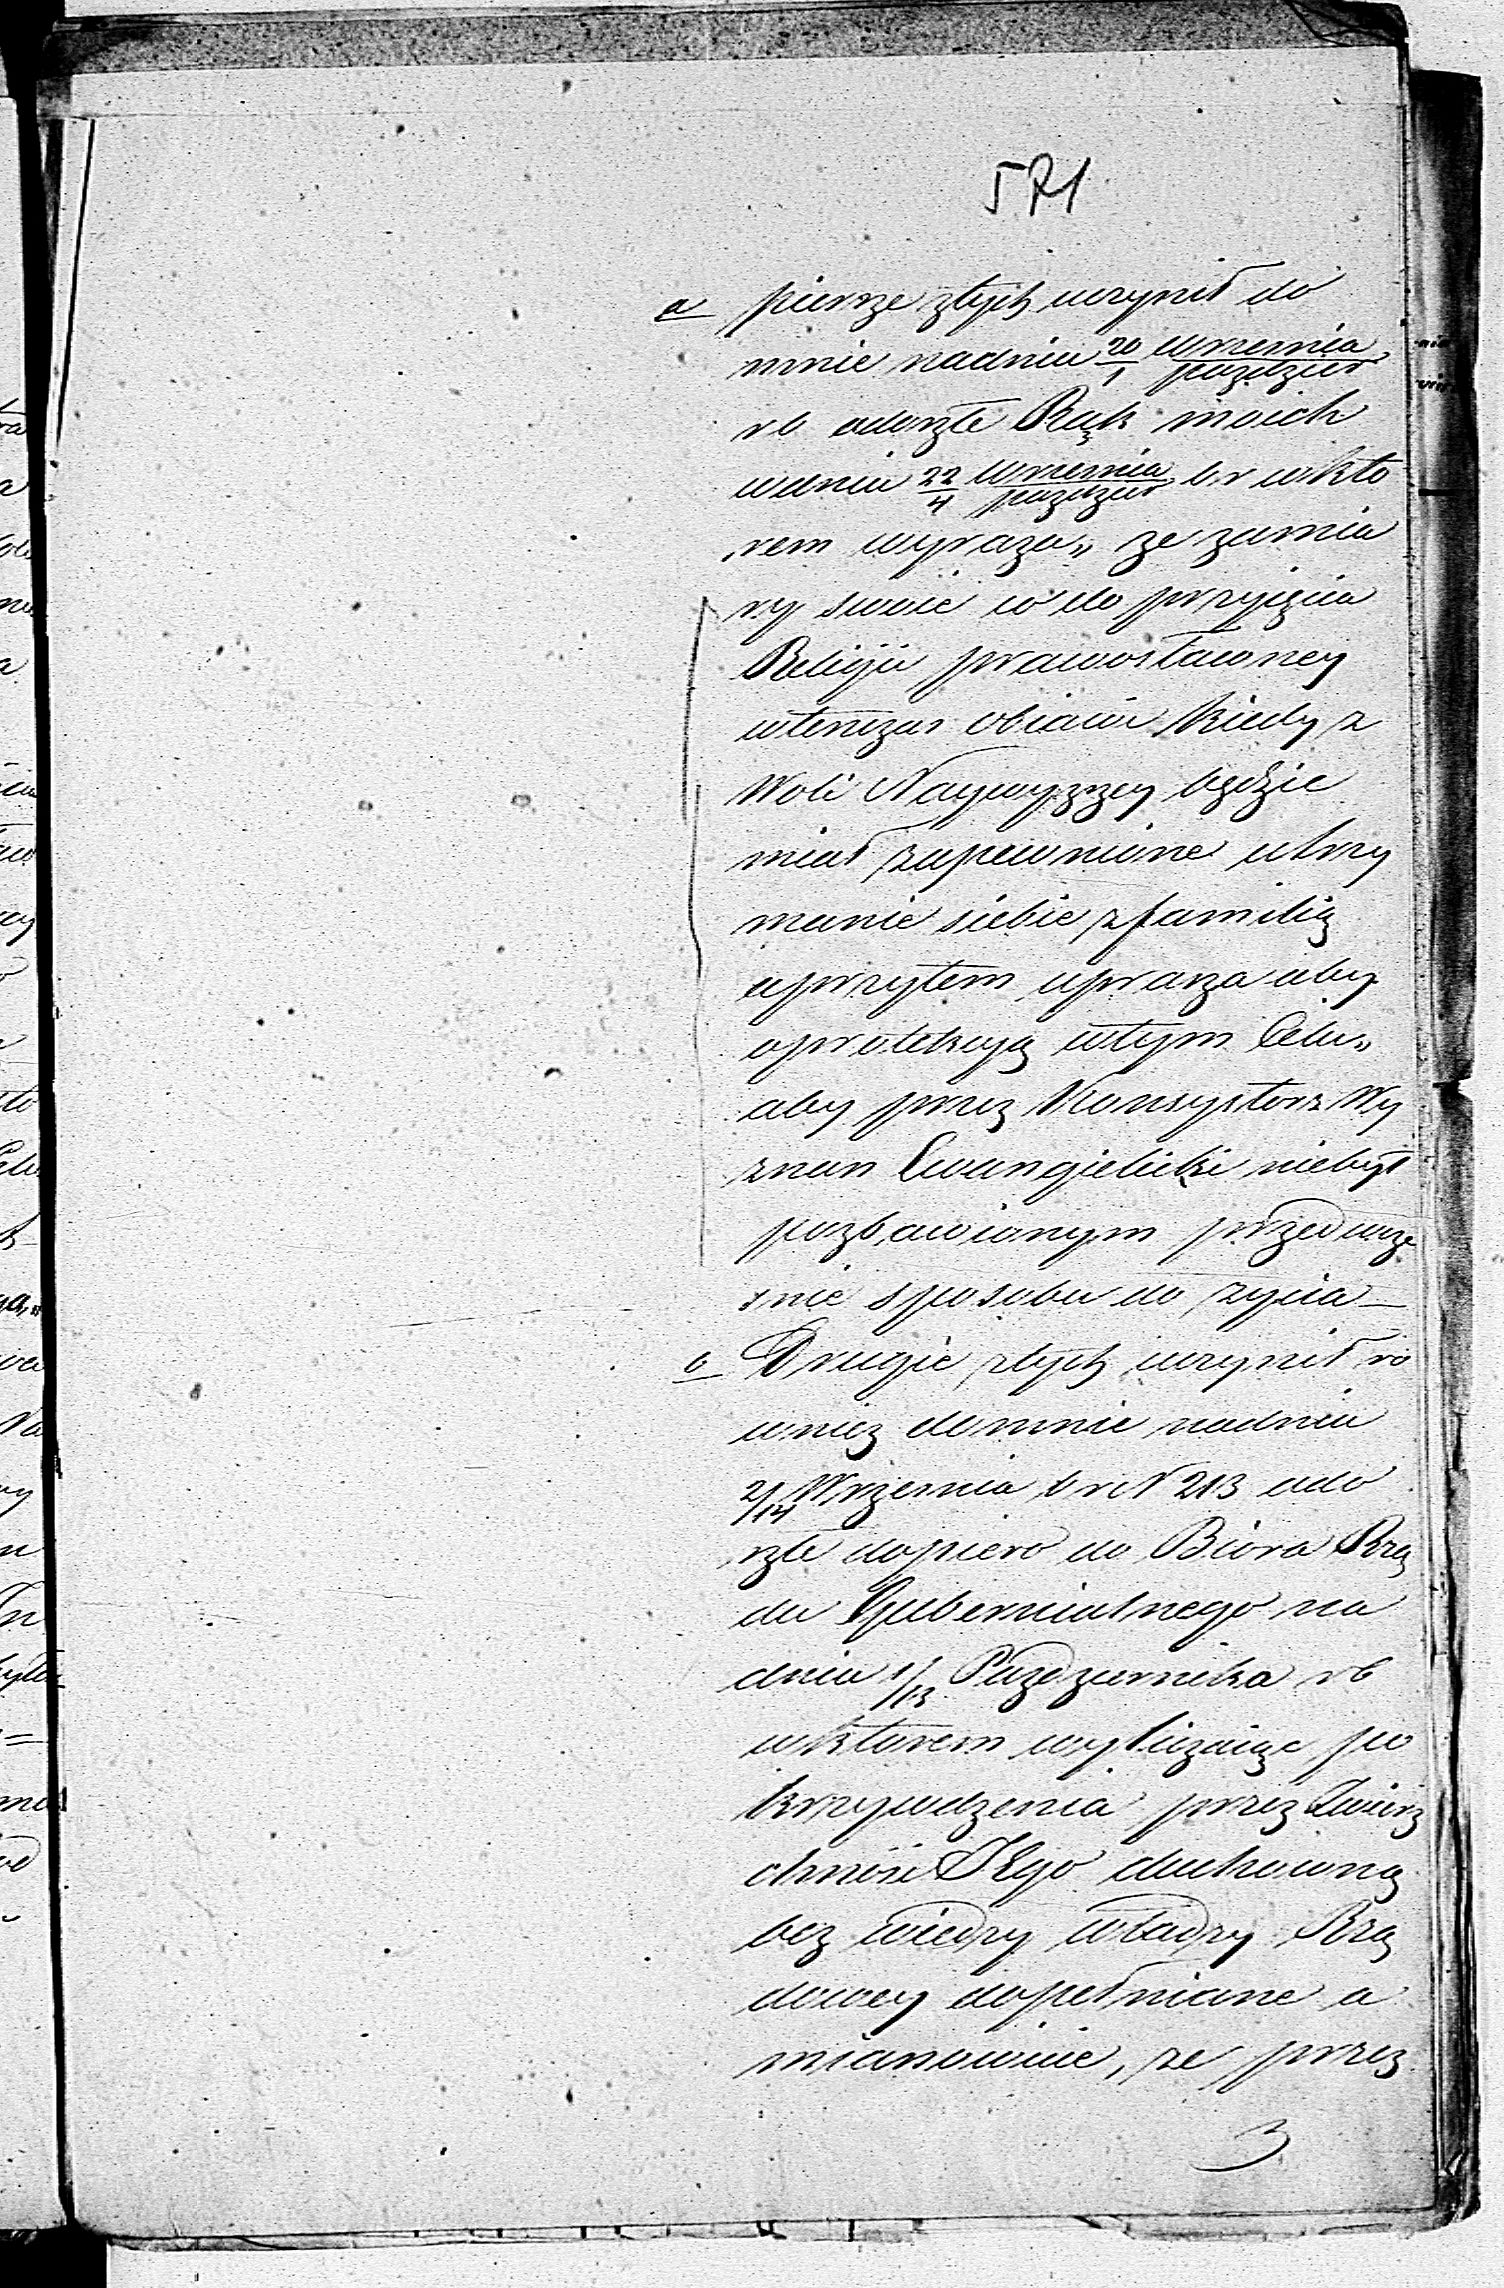 571
a pierwsze ztych uczynił do
mnie nadniu 20/1 Wrzesnia/pazdzier
rb odeszłe Rąk moich
wdniu 22/4 Wrzesnia/pazdzier b.r wktó
rem wyraza„ ze zamia
ry swoie co do przyięcia
Religii prawosławney
wtenczas obiawi kiedy z
Woli Naywyzszey będzie
miał zapewnione utrzy
manie siebie z familią
aprzytem uprasza aby
oprotekcyą wtym Celu„
aby przez Konsystorz Wy
znan Ewangielicki niebył
pozbawionym przedwcze
snie sposobu do zycia —
b Drugie ztych uczynił ró
wniez domnie nadniu
2/14 Wrzesnia br N 213 ado
szłe dopiero do Biora Rzą
du Gubernialnego na
dniu 1/13 Pazdziernika rb
wktorem wyliczaiąc po
krzywdzenia przez Zwierz
chnosc Jego duchowną
bez wiedzy władzy Rzą
dowey dopełniane a
mianowicie, ze przez
3